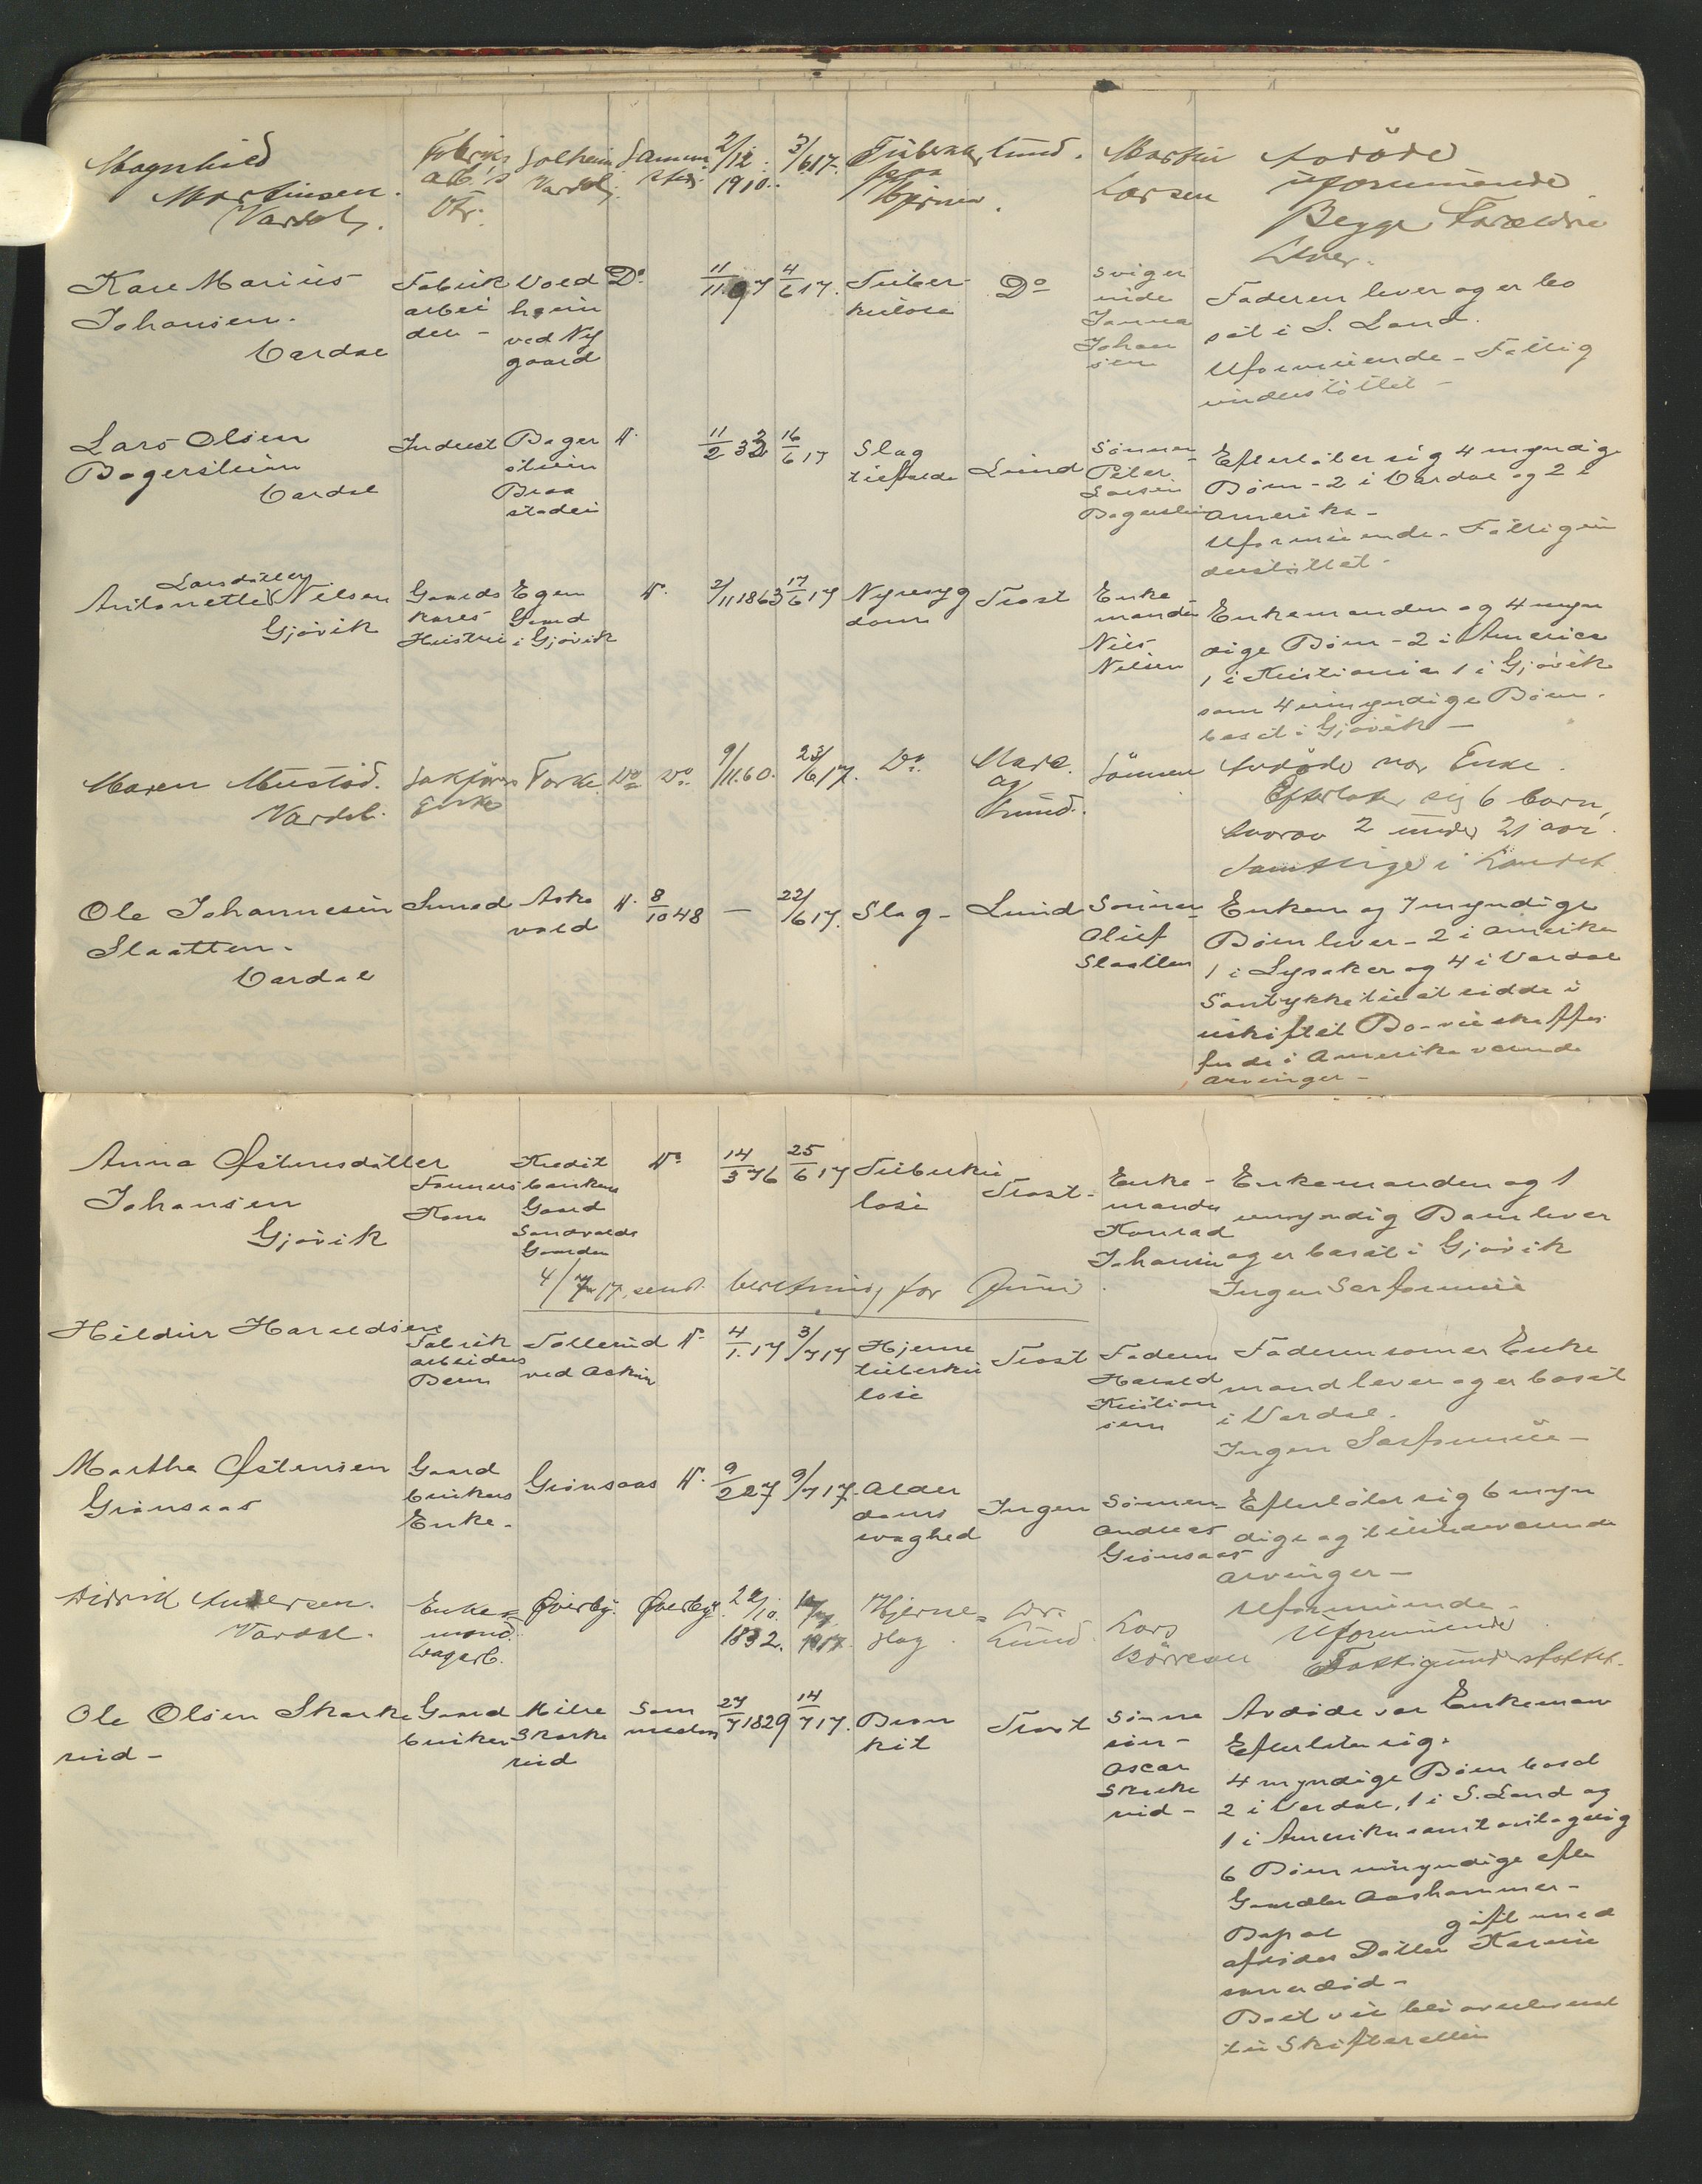 Magnhild
Martinsen.
Vardal.
Fabriks
arb.s
Dtr.
Solheim
Vardal.
Samme
sted.
2/12
1910.
3/6 17.
Tuberk.
paa
Hjernen.
Lund.
Martin
Larsen
Avdöde
uformuende
Begge Forældre
lever.
Kare Marius
Johansen.
Vardal
Fabrik
arbei
der -
Vold
heim
ved Ny
gaard
Do
11/11 97
4/6 17.
Tuber-
kulose
Do
Sviger
inde
Johan
sen
Faderen lever og er bo
sat i S. Land.
Uformuende - Fattig
understöttet -
Lars Olsen
Bagersteien
Vardal
Inderst
Bager
steien
Braa
staden
N.
11/2 32
16/6 17
Slag
tilfælde
Lund
Sönnen
Peter
Larsen
Efterlater sig 4 myndige
Börn - 2 i Vardal og 2 i
Amerika -
Uformuende. Fattigun
derstöttet -
Larsdatter
Antonette Nilsen
Gjövik
Gaards
Kares
Hustru
Egen
Gaard
i Gjövik
N.
2/11 1863
17/6 17
Nyresyg
dom
Trost
Enke
manden
Nils
Nilsen
Enkemanden og 4 myn
dige Börn - 2 i America
1 i Kristiania 1 i Gjövik
samt 4 umyndige Börn.
bosat i Gjövik -
Maren Mustad.
Vardal.
Sakförers
Enke
Do
Do.
9/11.60.
23/6 17.
Do.
og
Lund.
Sönnen
Avdöde var Enke.
Efterlater sig 6 barn,
hvorav 2 under 21 aar.
Samtlige i Landet
Ole Johannesen
Slaatten.
Vardal
Smed
Asko
vold
N.
8/10 48
—
22/6 17.
Slag -
Lund
Sönnen
Oluf
Slaatten
Enken og 7 myndige
Börn lever - 2 i Amerika
1 i Lysaker og 4 i Vardal
Samtykke til at sidde i
uskiftet Bo - vil skaffes
fra de i Amerika værende
arvinger -
Anna Østensdatter
Johansen
Gjövik
Kone
Kredit
bankens
Gaard
Sandvolds
Gaarden
N.
14/3 76
25/6 17
Tuberku
lose
Trost -
Enke -
manden
Konrad
Johansen
Enkemanden og 1
umyndig Barn lever
og er bosat i Gjövik
Ingen Særformue
4/7 17. sendt beretning for Juni.
Hildur Haraldsen
Fabrik
arbeiders
Barn
Tollerud
ved Askim
N.
4/1. 17
3/7 17
Hjerne
tuberku
lose
Trost
Faderen
Harald
Kristian
sen
Faderen som er Enke
mand lever og er bosat
i Vardal.
Ingen Særformue -
Marthe Østensen
Grönsaas
Gaard
brukers
Enke -
Grönsaas
N.
9/2 27
9/7 17.
Alder
doms
svaghed
Ingen
Sönnen
Andreas
Grönsaas
Efterlater sig 6 myn
dige og tilstedeværende
arvinger -
Uformuende -
Didrik Andersen.
Vardal.
Enke=
mand.
Øverby.
Øverby.
1832.
1917.
Hjerne=
slag.
Dr.
Lund.
Lars
Börresen
Uformuende
Fattigunderstöttet.
Ole Olsen Skarke
rud -
Gaard
bruker
Nilse
Skarke
rud
Som
meden
27/7 1829
14/7 17.
Bron
kit
Trost
Sönne
sön -
Oscar
Skarke
rud -
Avdöde var Enkeman
Efterlater sig.
4 myndige Börn bosat
2 i Vardal, 1 i S. Land og
1 i Amerika samt antagelig
6 Börn umyndige efter
Gaardbr Aashammer -
gift med
afdödes Datter Karine
som er död -
Boet vil bli overleveret
til Skifteretten